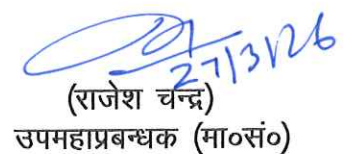 27/3/26
(राजेश चन्द्र)
उपमहाप्रबन्धक (मा०सं०)